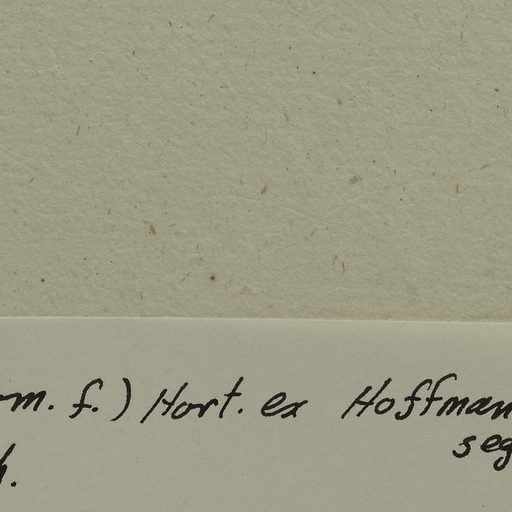 rm. f.) Hort. ex Hoffman
seg
h.